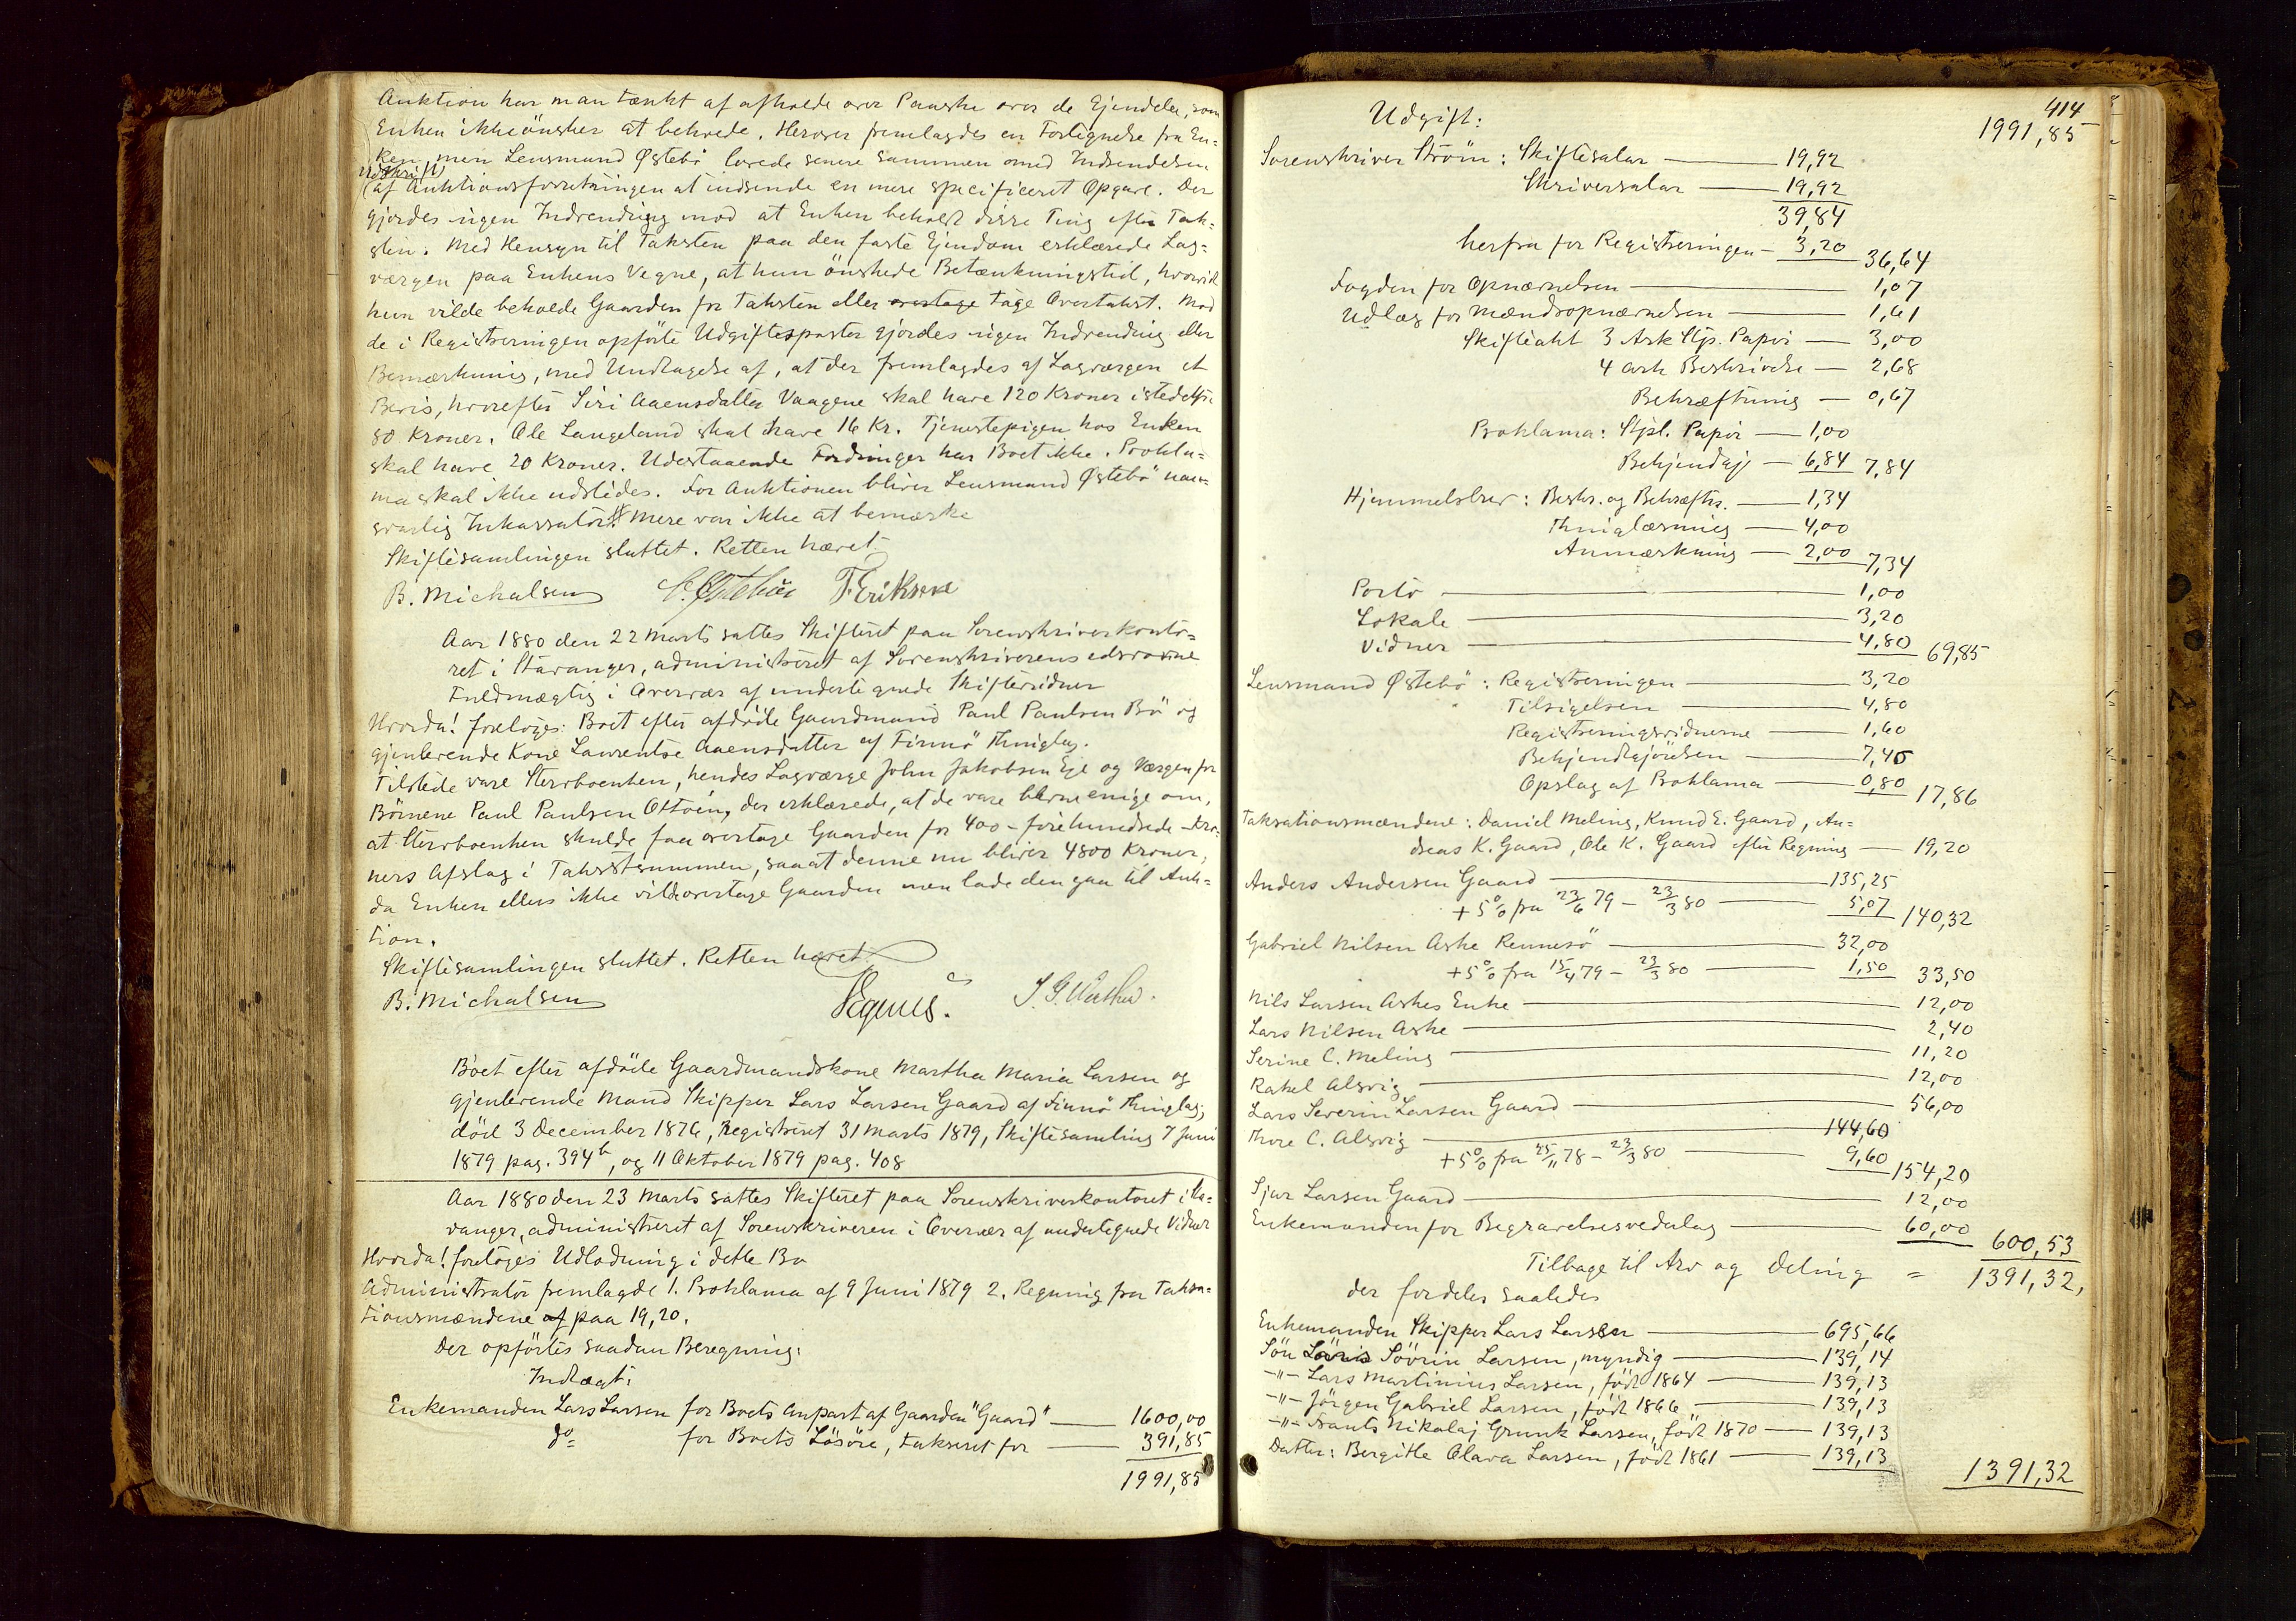 Auktion har man tænkt af afholde over Paaske over de Ejendele, som
Enken ikke önsker at beholde. Herover fremlagdes en Fortegnelse fra En=
ken, men Lensmand Østebö lovede senere sammen med Indsendelsen
Udskrift
af Auktionsforretningen at indsende en mere specificeret Opgave. Der
gjordes ingen Indvending mod at Enken beholdt disse Ting efter Tak=
sten. Med Hensyn til Taksten paa den faste Ejendom erklærede Lag=
værgen paa Enkens Vegne, at hun önskede Betænkningstid, hvorvidt
hun vilde beholde Gaarden for Taksten eller overtage tage Overtakst. Mod
de i Registreringen opförte Udgiftsposter gjordes ingen Indvending eller
Bemærkning, med Undtagelse af, at der fremlagdes af Lagværgen et
Bevis, hvorefter Siri Aaensdatter Vaagene skal have 120 Kroner istedetfor
80 Kroner. Ole Langeland skal have 16 Kr. Tjenestepigen hos Enken
skal have 20 Kroner. Udestaaende Fordringer har Boet ikke. Prokla=
ma skal ikke udstedes. For Auktionen bliver Lensmand Østebö uan=
svarlig Inkassator. Mere var ikke at bemærke
Skiftesamlingen sluttet. Retten hævet
B. Michalsen Østebö T. Eriksen
Aar 1880 den 22 Marts sattes Skifteret paa Sorenskriverkonto=
ret i Stavanger, administreret af Sorenskriverens edsvorne
Fuldmægtig i Overvær af undertegnede Skiftevidner
Hvorda! foretoges: Boet efter afdöde Gaardmand Paul Paulsen Bö og
gjenlevende Kone Lawrentse Aaensdatter af Finnö Thinglag.
Tilstede vare Sterboenken, hendes Lagværge John Jakobsen Eje og Værgen for
Börnene Paul Paulsen Ottöen, der erklærede, at de vare blevne enige om,
at Sterboenken skulde faa overtage Gaarden for 400 - firehundrede - Kro=
ners Afslag i Takstsummen, saaat denne nu bliver 4800 Kroner,
da Enken ellers ikke vilde overtage Gaarden men lade den gaa til Auk=
tion.
Skiftesamlingen sluttet. Retten hævet
B. Michalsen
Boet efter afdöde Gaardmandskone Martha Maria Larsen og
gjenlevende Mand Skipper Lars Larsen Gaard af Finnö Thinglag,
död 3 December 1876, Registreret 31 Marts 1879, Skiftesamling 7 Juni
1879 pag. 394b, og 11 Oktober 1879 pag. 408
Aar 1880 den 23 Marts sattes Skifteret paa Sorenskriverkontoret i Sta=
vanger, administreret af Sorenskriveren i Overvær af undertegnede Vidner
Hvorda! foretoges Udlodning i dette Bo
Administrator fremlagde 1. Proklama af 9 Juni 1879 2. Regning fra Taksa=
tionsmændene af paa 19,20.
Der opförtes saadan Beregning:
Indtægt:
Enkemanden Lars Larsen for Boets Anpart af Gaarden "Gaard" — 1600,00
do for Boets Lösöre, takseret for — 391,85
1991,85
414
Udgift: 1991,85
Sorenskriver Ström: Skiftesalær — 19,92
Skriversalær — 19,92
39,84
herfra for Registreringen — 3,20 36,64
Fogden for Opnævnelsen — 1,07
Udlæg for Mændsopnævnelsen — 1,61
Skifteakt 3 Ark Stp. Papir — 3,00
4 Ark Beskrivelse — 2,68
Bekræftning — 0,67
Proklama: Stpl. Papir — 1,00
Bekjendtgj — 6,84 7,84
Hjemmelsbrev: Beskr. og Bekræftn. — 1,34
Thinglæsning — 4,00
Anmærkning — 2,00 7,34
Porto — 1,00
Lokale — 3,20
Vidner — 4,80 69,85
Lensmand Østebö: Registreringen — 3,20
Tilsigelsen — 4,80
Registreringsvidnerne — 1,60
Bekjendtgjörelsen — 7,46
Opslag af Proklama — 0,80 17,86
Taksationsmændene: Daniel Meling, Knud E. Gaard, An=
dreas K. Gaard, Ole K. Gaard efter Regning — 19,20
Anders Andersen Gaard — 135,25
+ 5% fra 23/6 79 - 23/3 80 — 5,07 140,32
Gabriel Nilsen Aske Rennesö — 32,00
+ 5% fra 15/4 79 - 23/3 80 — 1,50 33,50
Nils Larsen Askes Enke — 12,00
Lars Nilsen Aske — 2,40
Serine C. Meling — 11,20
Rakel Alsvig — 12,00
Lars Severin Larsen Gaard — 56,00
Thore C. Alsvig — 144,60
+ 5% fra 25/11 78 - 23/3 80 — 9,60 154,20
Sjur Larsen Gaard — 12,00
Enkemanden for Begravelsesvederlag — 60,00 600,53
Tilbage til Arv og Deling = 1391,32,
der fordeles saaledes
Enkemanden Skipper Lars Larsen — 695,66
Sön Sövrin Larsen, myndig — 139,14
-"- Lars Martinius Larsen, födt 1864 — 139,13
-"- Jörgen Gabriel Larsen, födt 1866 — 139,13
-"- Nikolaj Grunk Larsen, födt 1870 — 139,13
Datter: Bergitte Olava Larsen, födt 1861 — 139,13
1391,32